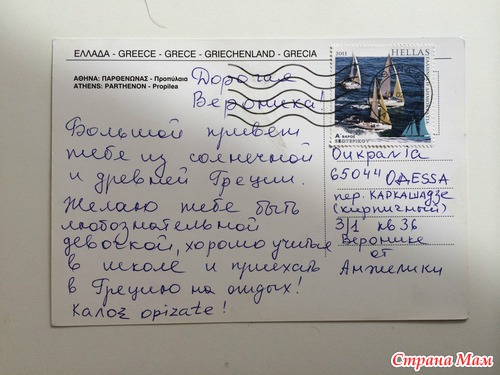 ΕΛΛΑΔΑ - GREECE - GRECE - GRIECHENLAND - GRECIA
ΑΘΗΝΑ: ΠΑΡΘΕΝΩΝΑΣ - Προπύλαια
ATHENS: PARTHENON - Propilea
Дорогие
Вероника!
Большой привет
тебе из солнечной
и древней Греции.
Желаю тебе быть
любознательной
девочкой, хорошо учиться
в школе и приехать
в Грецию на отдых!
Καλος orizate!
2011 HELLAS
Α' ΒΑΡΟΣ
ΕΣΩΤΕΡΙΚΟΥ
Ουκρανία
65044 ОДЕSSA
пер. КАРКАШАДЗЕ
(кирпичный)
3/1 кв 36
Веронике
от
Анжелики
Страна Мам